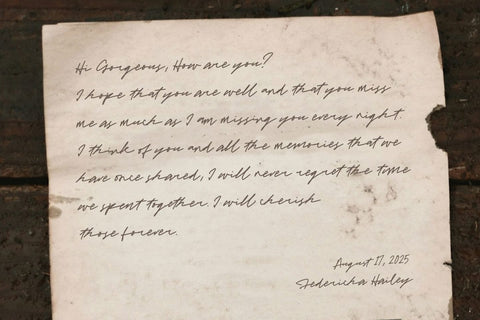 Hi Gorgeous, How are you?
I hope that you are well and that you miss
me as much as I am missing you every night.
I think of you and all the memories that we
have once shared, I will never regret the time
we spent together. I will cherish
those forever.
August 17, 2025
Federicka Hailey